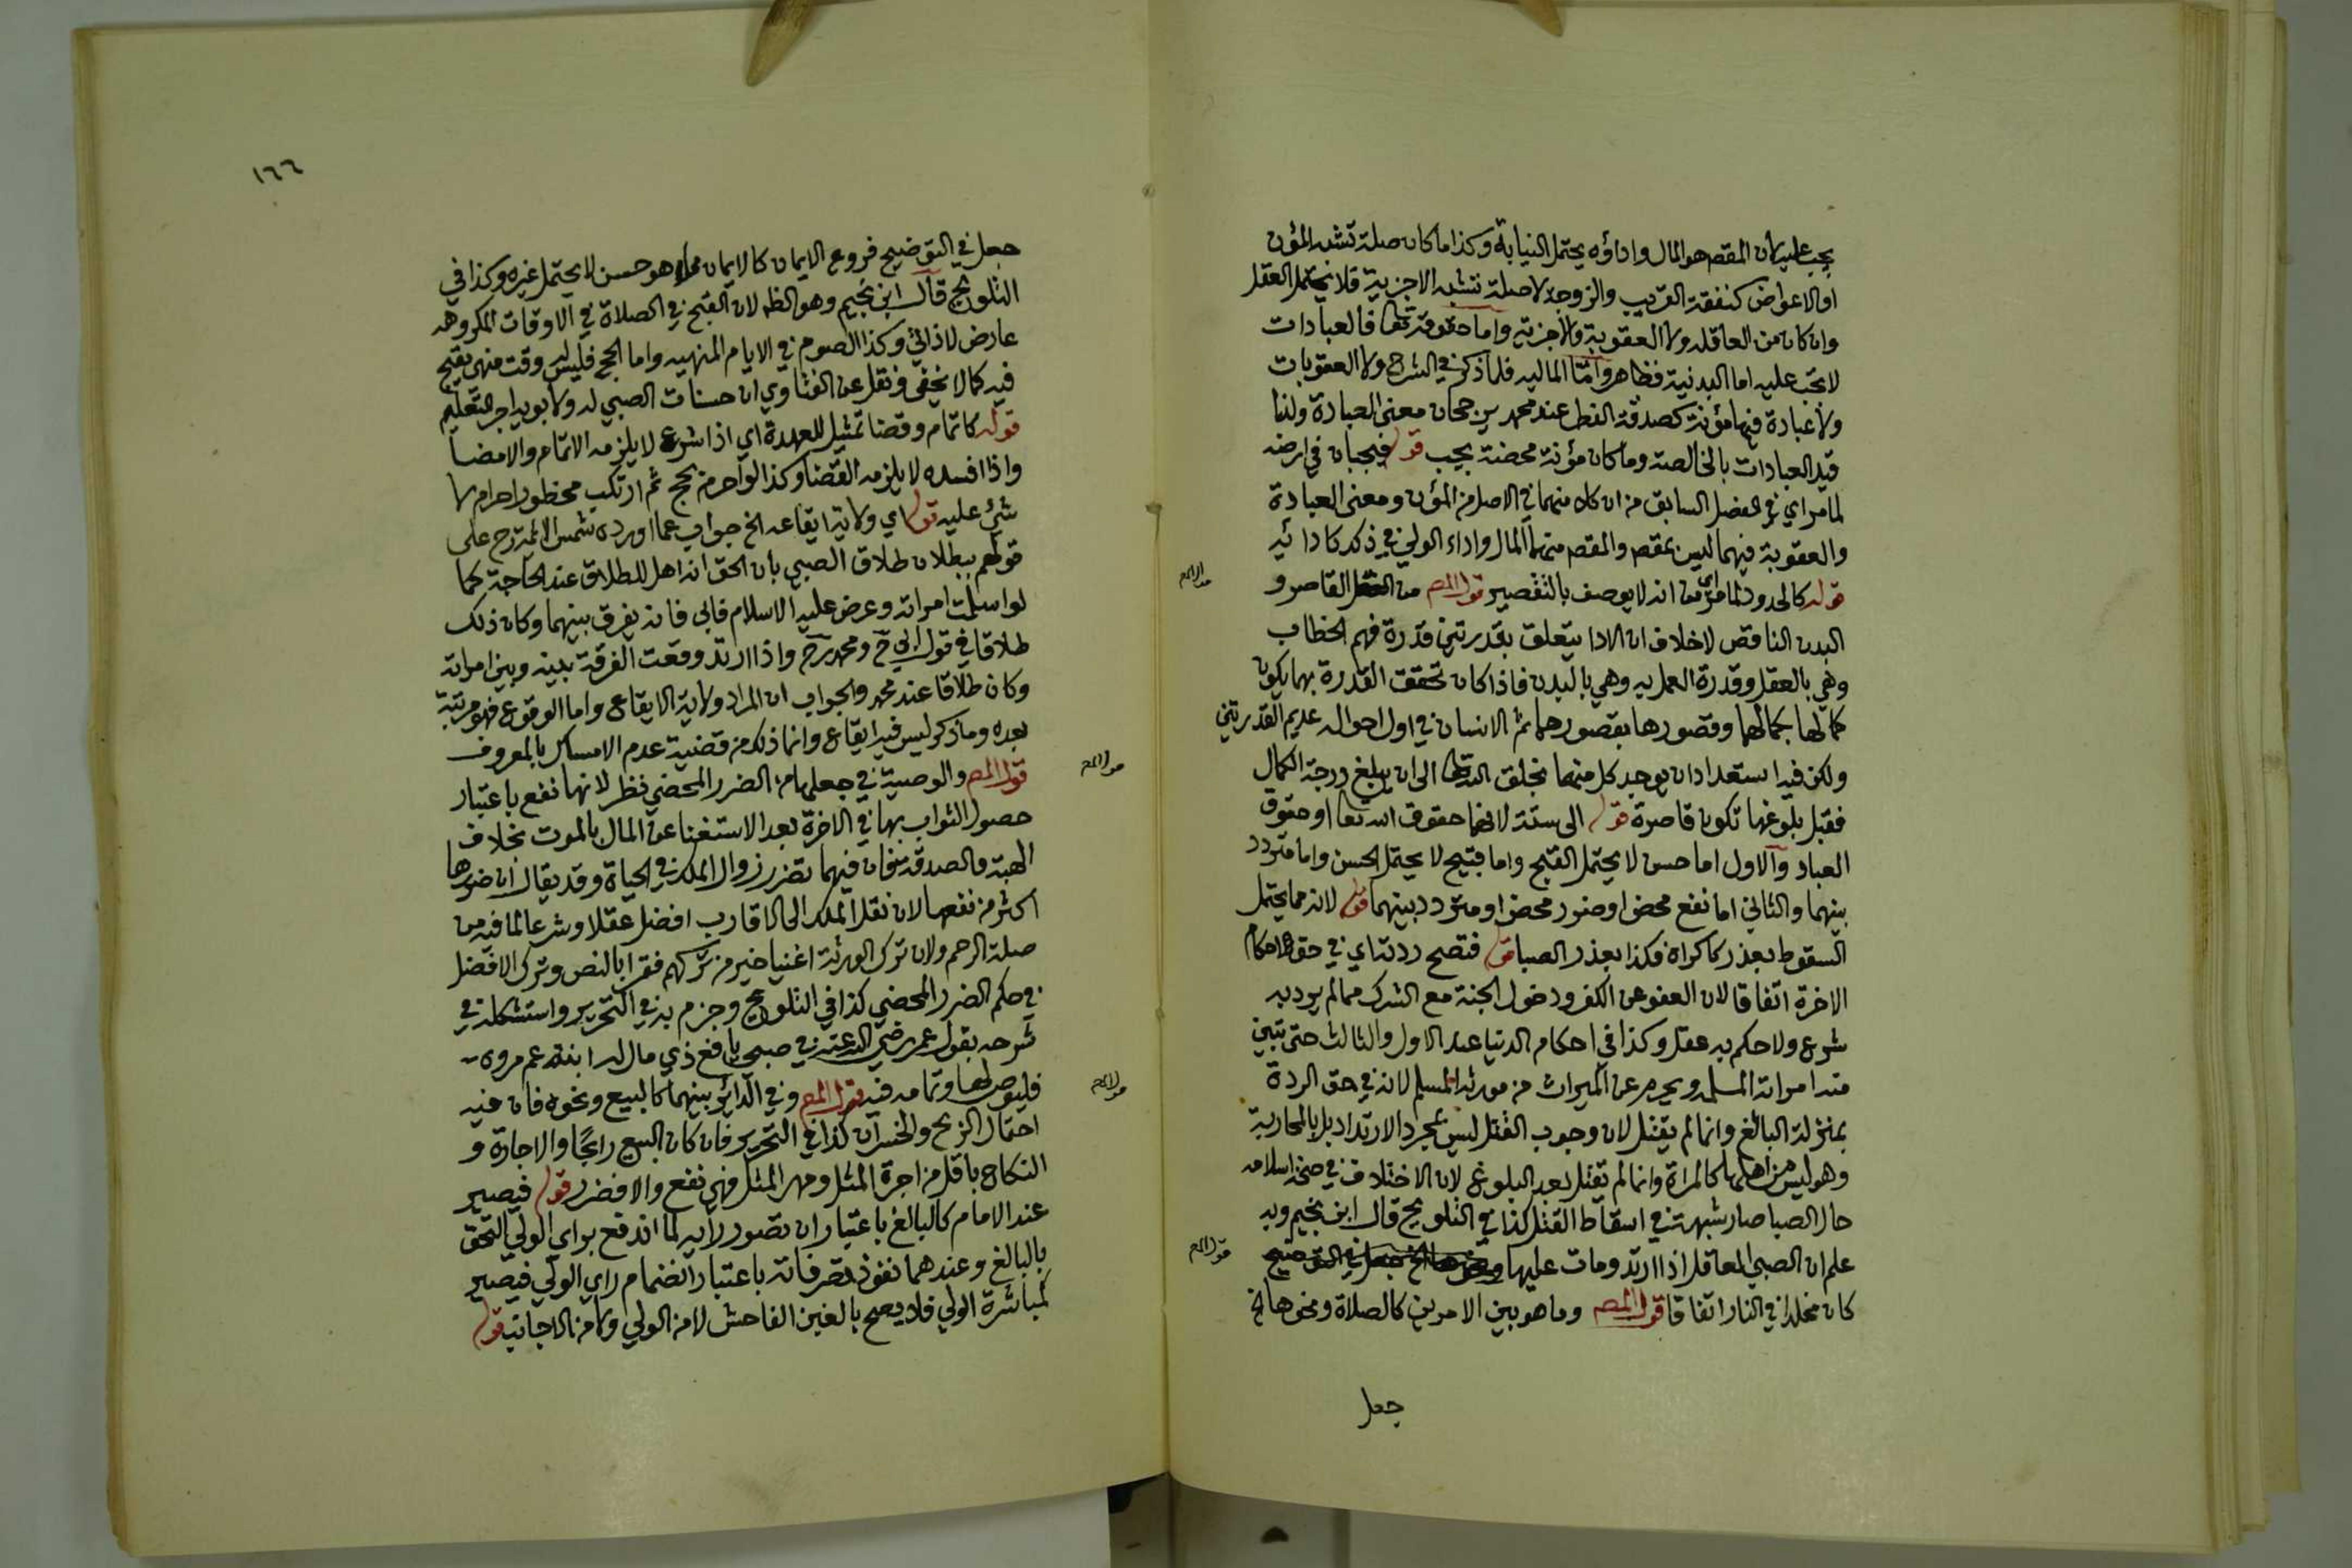 يجب عليه لان المقصـ هو المال واداؤه يحتمل النيابة وكذا ما كان صلة تشبه المؤن
او الاعواض كنفقة القريب والزوجة لا صلة تشبه الاجزية فلا يتحمل العقل
وان كان من العاقلة ولا العقوبة ولا جزيته واما حقوقه تعا فالعبادات
لا تجب عليه اما البدنية فظاهر وامّا الماليه فلما ذكر في الشرح ولا العقوبات
ولا عبادة فيها مؤنة كصدقة الفطر عند محمد برجحان معنى العبادة ولذا
قيد العبادات بالخالصة وما كان مؤنة محضة يجب قوله فيجبان في ارضه
لما مراي في الفصل السابق من ان كلا منهما في الاصل من المؤن ومعنى العبادة
والعقوبة فيهما ليس بمقصـ والمقصـ منهما المال واداء الولي في ذلك كادائيه
قوله كالحدود لما مراي من انه لا يوصف بالتقصير قول المصـ من العقل القاصر و
البدن الناقص لا خلاف ان الادا يتعلق بقدرتين قدرة فهم الخطاب
وهي بالعقل وقدرة العمل به وهي بالبدن فاذا كان تحقق القدرة بهما يكون
كمالها بكمالهما وقصورها بقصورهما ثم الانسان في اول احواله عديم القدرتين
ولكن فيه استعداد ان يوجد كل منهما بخلق الله تعا الى ان يبلغ درجة الكمال
فقبل بلوغها تكون قاصرة قوله الى ستة لانها حقوق الله تعا او حقوق
العباد والاول اما حسن لا يحتمل القبح واما قبيح لا يحتمل الحسن واما متردد
بينهما والثاني اما نفع محض او ضرر محض او متردد بينهما قوله لانه مما يحتمل
السقوط بعذر كاكراه فكذا بعذر الصبا قوله فتصح ردته اي في حق احكام
الاخرة اتفاقا لان العفو عن الكفر ودخول الجنة مع الشرك مما لم يرد به
شرع ولا حكم به عقل وكذا في احكام الدنيا عند الاول والثالث حتى تبين
منه امراته المسلمه ويحرم عن الميراث من مورثه المسلم لانه في حق الردة
بمنزلة البالغ وانما لم يقتل لان وجوب القتل ليس بمجرد الارتداد بل بالمحاربة
وهو ليس من اهلها كالمراة وانما لم تقتل بعد البلوغ لان الاختلاف في صحة اسلامه
حال الصبا صار شبهة في اسقاط القتل كذا في التلويح قال ابن نجيم وبه
علم ان الصبي العاقل اذا ارتد ومات عليها
كان مخلدا في النار اتفاقا قول المصـ وما هو بين الامرين كالصلاة ونحوها الخ
جعل
١٦٦
جعل في التوضيح فروع الايمان كالايمان مما هو حسن لا يحتمل غيره وكذا في
التلويح قال ابن نجيم وهو الظـ لان القبح في الصلاة في الاوقات المكروهه
عارض لا ذاتي وكذا الصوم في الايام المنهيه واما الحج فليس وقت منهي يقبح
فيه كما لا يخفى ونقل عن الفتاوي ان حسنات الصبي له ولابويه اجر التعليم
قوله كاتمام وقضا تمثيل للعهدة اي اذا شرع لا يلزمه الاتمام والامضا
واذا افسده لا يلزمه القضا وكذا لو احرم بحج ثم ارتكب محظور احرام لا
شئ عليه قوله اي ولاية ايقاعه الخ جواب عما اورده شمس الائمة رح على
قولهم ببطلان طلاق الصبي بان الحق انه اهل للطلاق عند الحاجة كما
لو اسلمت امراته وعرض عليه الاسلام فابى فانه يفرق بينهما وكان ذلك
طلاقا في قول ابي ح ومحمد رح واذا ارتد وقعت الفرقة بينه وبين امراته
وكان طلاقا عند محمد والجواب ان المراد ولاية الايقاع واما الوقوع فهو مرتبة
بعده وما ذكر ليس فيه ايقاع وانما ذلك من قضية عدم الامساك بالمعروف
قول المصـ والوصية في جعلها من الضرر المحض نظر لانها نفع باعتبار
حصول الثواب بها في الاخرة بعد الاستغنا عن المال بالموت بخلاف
الهبة والصدقة فان فيهما تضرر زوال الملك في الحياة وقد يقال ان ضررها
اكثر من نفعها لان نقل الملك الى الاقارب افضل عقلا وشرعا لما فيه من
صلة الرحم ولان ترك الورثة اغنيا خير من تركهم فقرا بالنص وترك الافضل
في حكم الضرر المحض كذا في التلويح وجزم به في التحرير واستشكله في
شرحه بقول عمر رضي الله عنه في صبي يافع ذي مال له ابنة عم مروه
فليوص لها وتمامه فيه قول المصـ وفي الدائر بينهما كالبيع ونحوه فان فيه
احتمال الربح والخسران كذا في التحرير فان كان البيع رابحًا والاجارة و
النكاح باقل من اجرة المثل ومهر المثل فهي نفع والا فضرر قوله فيصير
عند الامام كالبالغ باعتبار ان قصور رايه لما اندفع براي الولي التحق
بالبالغ وعندهما نفوذ تصرفاته باعتبار انضمام راي الولي فيصير
كمباشرة الولي فلا يصح بالغبن الفاحش لا من الولي ولا من الاجانب قوله